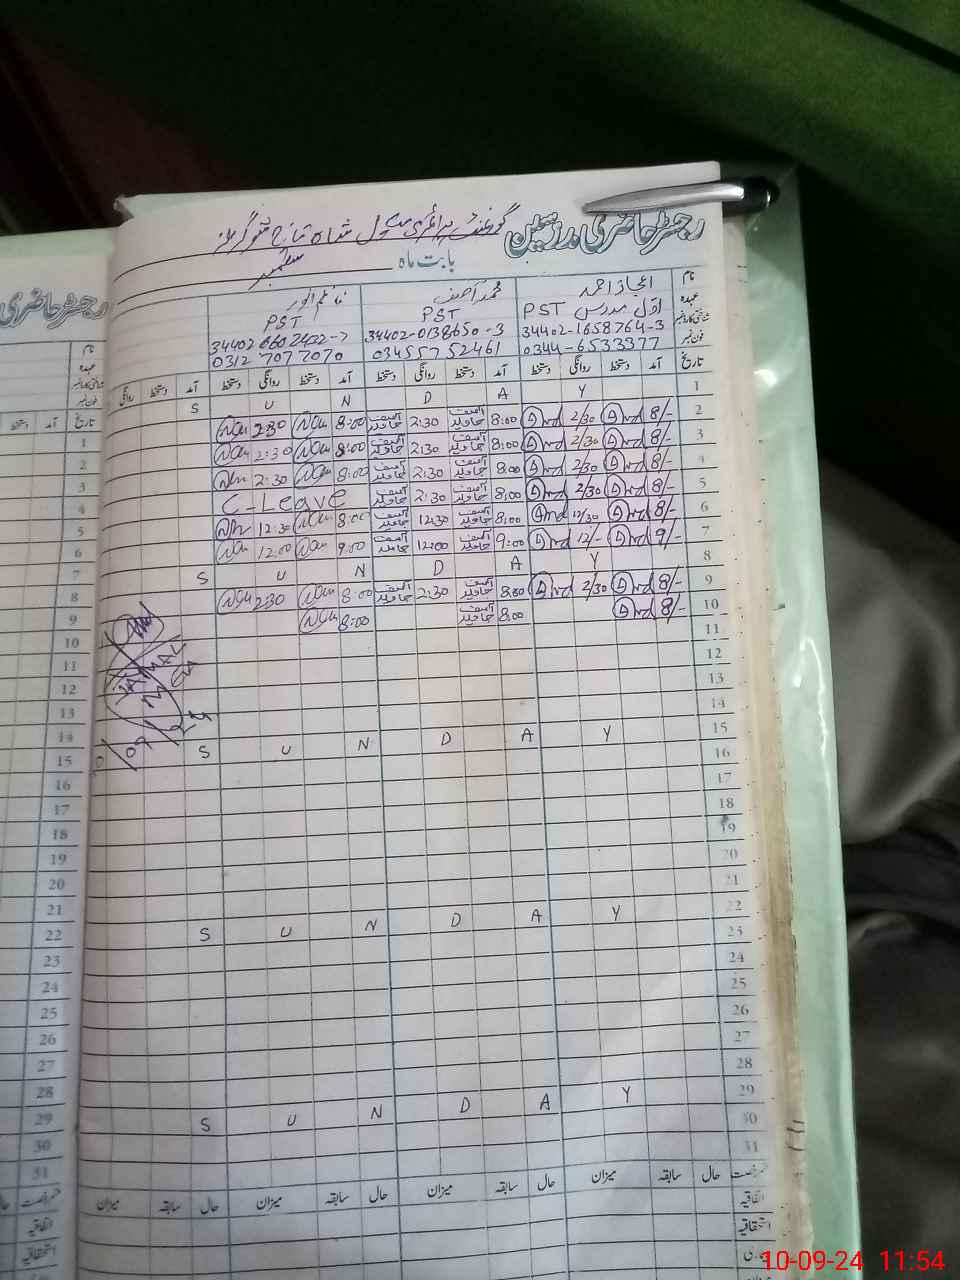 رجسٹر حاضری مدرسین گورنمنٹ پرائمری سکول شاہ
بابت ماہ ستمبر
نام اعجاز احمد محمد آصف
عہدہ اول مدرس PST PST PST
شناختی کارڈ نمبر 34402-1658764-3 34402-0138650-3 34402
فون نمبر 0344-6533377 03455752461 0312 7077070
تاریخ آمد دستخط روانگی دستخط آمد دستخط روانگی دستخط آمد دستخط روانگی دستخط آمد دستخط
1 S U N D A Y
2 8/- 2/30 8:00 آصف جاوید 2:30 آصف جاوید 8:00 2:30
3 8/- 2/30 8:00 آصف جاوید 2:30 آصف جاوید 8:00 2:30
4 8/- 2/30 8:00 آصف جاوید 2:30 آصف جاوید 8:00 2:30
5 8/- 2/30 8:00 آصف جاوید 2:30 آصف جاوید C-Leave
6 8/- 12/30 8:00 آصف جاوید 12:30 آصف جاوید 8:00 12:30
7 9/- 12/- 9:00 آصف جاوید 12:00 آصف جاوید 9:00 12:00
8 S U N D A Y
9 8/- 2/30 8:00 آصف جاوید 2:30 آصف جاوید 8:00 2:30
10 8/- 8:00 آصف جاوید 8:00
11
12
13
14
15 S U N D A Y
16
17
18
19
20
21
22 S U N D A Y
23
24
25
26
27
28
29 S U N D A Y
30
31
رخصت حال سابقہ میزان حال سابقہ میزان حال سابقہ میزان حال سابقہ میزان
اتفاقیہ
استحقاقیہ
رجسٹر حاضری
نام
عہدہ
شناختی کارڈ نمبر
فون نمبر
تاریخ آمد دستخط روانگی
1
2
3
4
5
6
7
8
9
10
11
12
13
14
15
16
17
18
19
20
21
22
23
24
25
26
27
28
29
30
31
رخصت حال
اتفاقیہ
استحقاقیہ
10-09-24 11:54